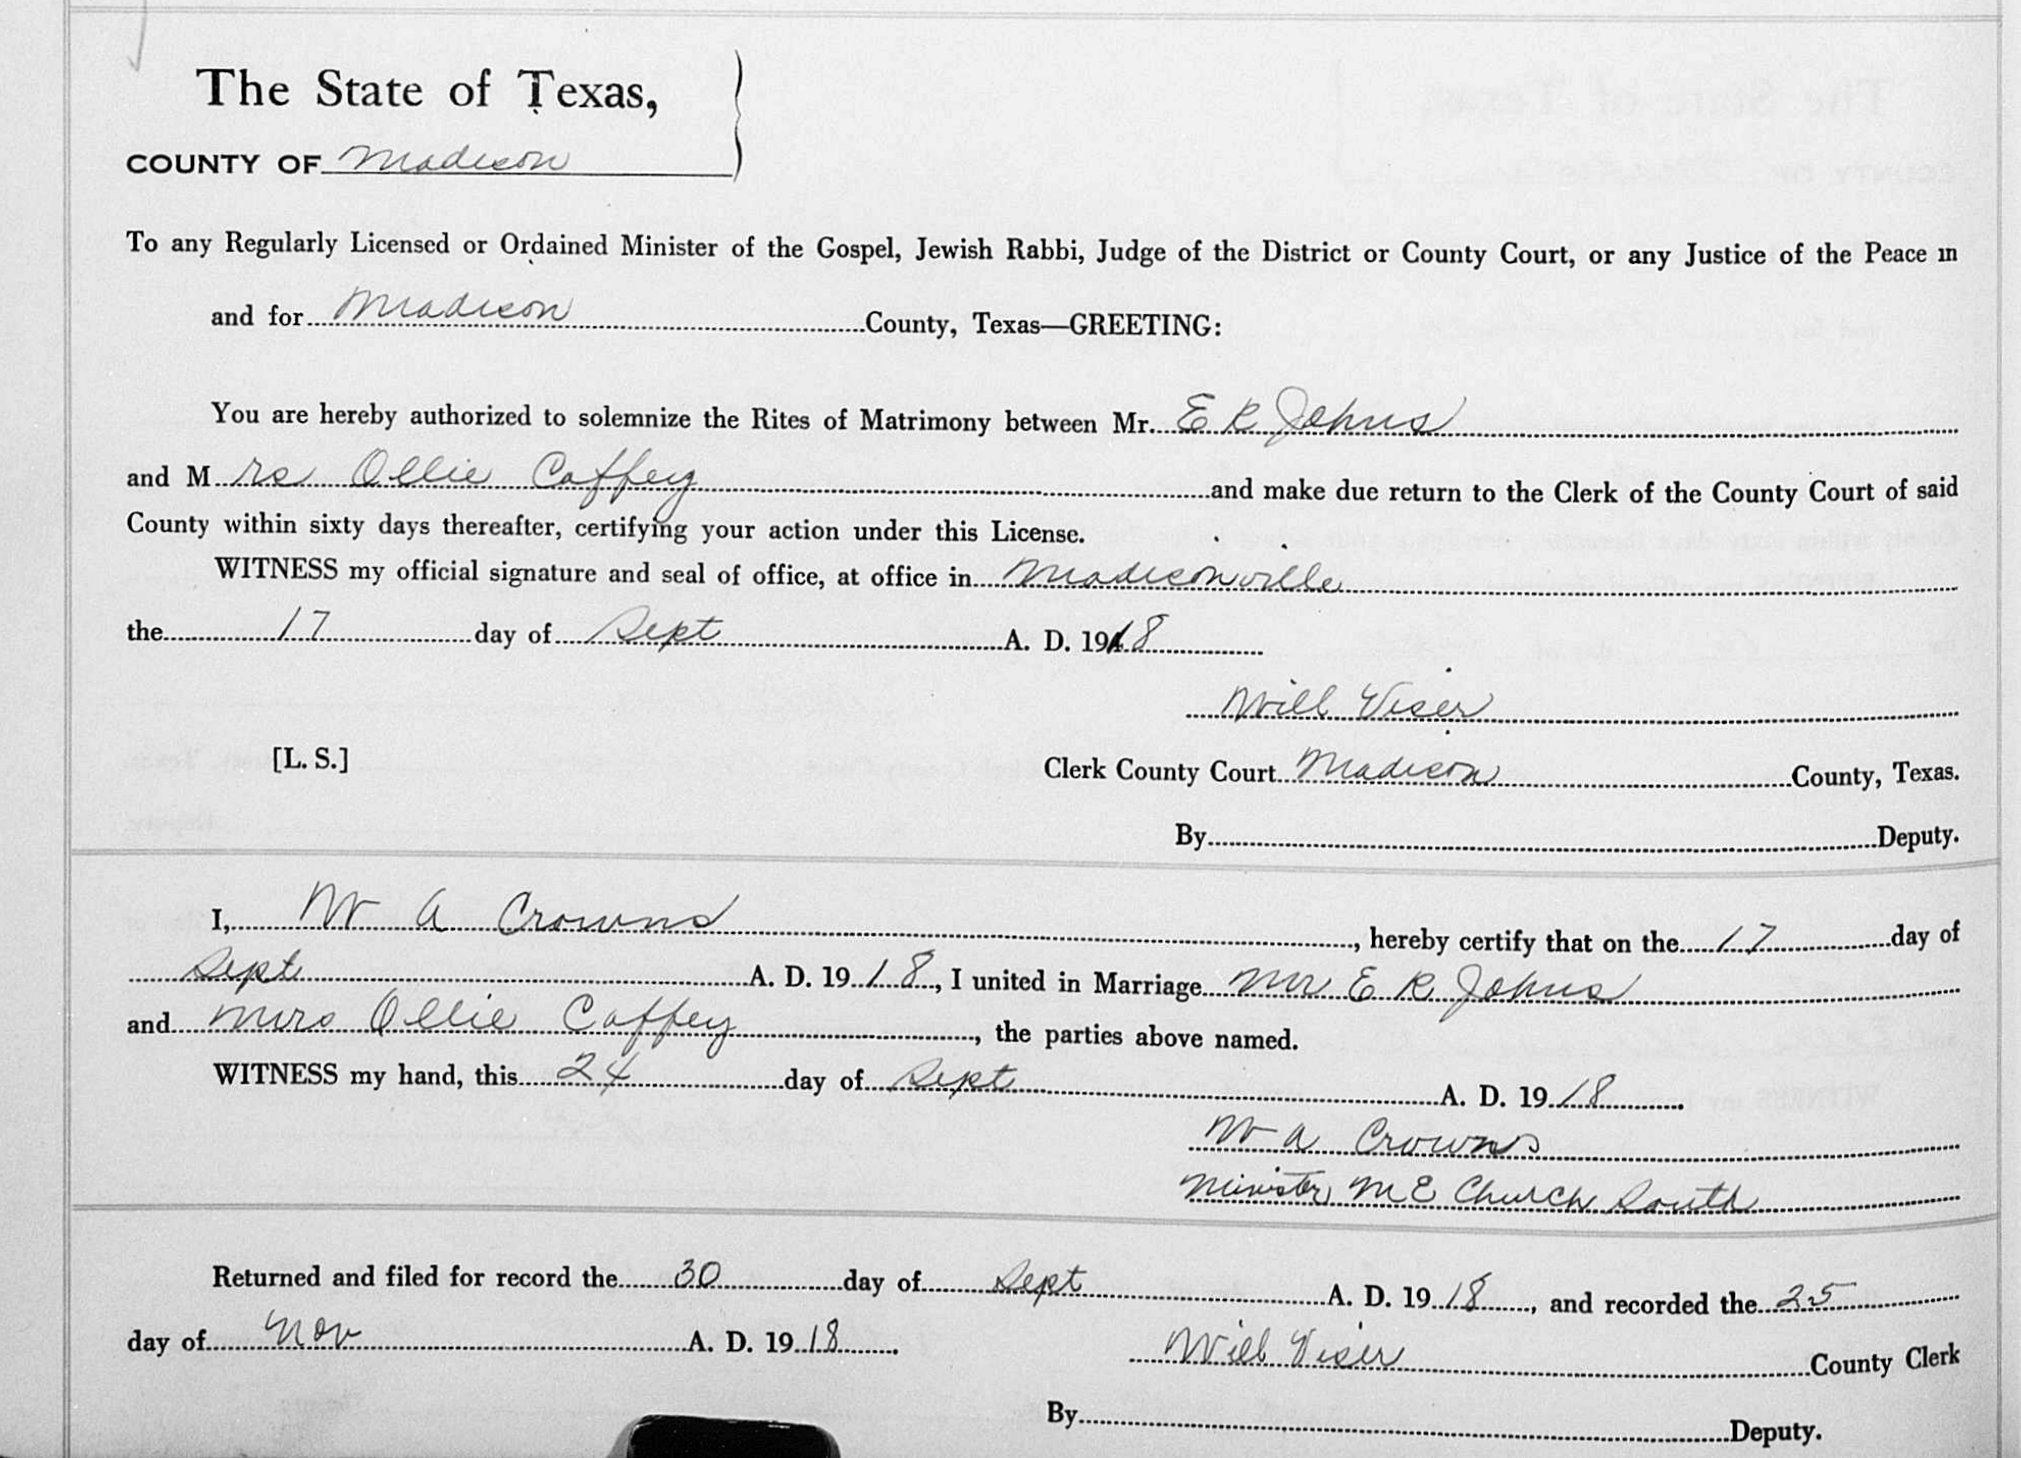 The State of Texas,
COUNTY OF Madison
To any Regularly Licensed or Ordained Minister of the Gospel, Jewish Rabbi, Judge of the District or County Court, or any Justice of the Peace in
and for Madison County, Texas—GREETING:
You are hereby authorized to solemnize the Rites of Matrimony between Mr. E R Johns
and Mrs Ollie Coffey and make due return to the Clerk of the County Court of said
County within sixty days thereafter, certifying your action under this License.
WITNESS my official signature and seal of office, at office in Madisonville
the 17 day of Sept A. D. 1918
Will Viser
[L. S.] Clerk County Court Madison County, Texas.
By Deputy.
I, W A Crowns, hereby certify that on the 17 day of
Sept A. D. 19 18, I united in Marriage Mr E R Johns
and Mrs Ollie Coffey, the parties above named.
WITNESS my hand, this 24 day of Sept A. D. 19 18
W A Crowns
Minister M E Church South
Returned and filed for record the 30 day of Sept A. D. 19 18, and recorded the 25
day of Nov A. D. 19 18. Will Viser County Clerk
By Deputy.